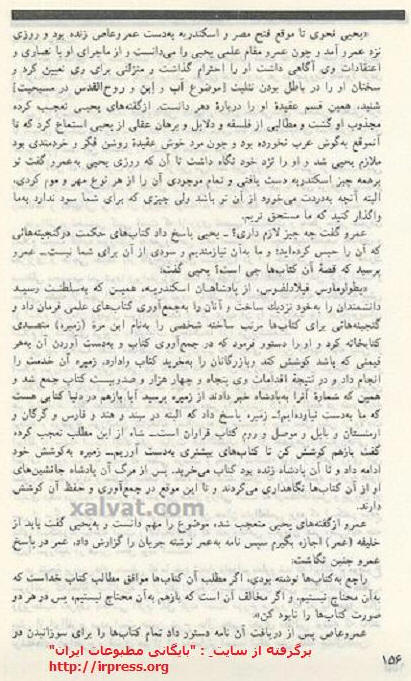 «یحیی نحوی تا موقع فتح مصر و اسکندریه به‌دست عمروعاص زنده بود و روزی
نزد عمرو آمد و چون عمرو مقام علمی یحیی را می‌دانست و از ماجرای او با نصاری و
اعتقادات وی آگاهی داشت او را احترام گذاشت و منزلتی برای وی تعیین کرد و
سخنان او را در باطل بودن تثلیث [موضوع اب و ابن و روح‌القدس در مسیحیت]
شنید، همین قسم عقیدهٔ او را دربارهٔ دهر دانست. ازگفته‌های یحیی تعجب کرده
مجذوب او گشت و مطالبی از فلسفه و دلایل و برهان عقلی از یحیی استماع کرد که تا
آنموقع به‌گوش عرب نخورده بود و چون مرد خوش عقیدهٔ روشن فکر و خردمندی بود
ملازم یحیی شد و او را نزد خود نگاه داشت تا آن که روزی یحیی به‌عمرو گفت تو
برهمه چیز اسکندریه دست یافتی و تمام موجودی آن را از هر نوع مهر و موم کردی،
البته آنچه به‌دردت می‌خورد از آن تو باشد ولی چیزی که برای شما سود ندارد به‌ما
واگذار کنید که ما مستحق تریم.
عمرو گفت چه چیز لازم داری؟ ـ یحیی پاسخ داد کتاب‌های حکمت درگنجینه‌هائی
که آن را حبس کرده‌اید؛ و ما به‌آن نیازمندیم و سودی از آن برای شما نیست ـ عمرو
پرسید که قصهٔ آن کتاب‌ها چی است؟ یحیی گفت:
«بطولوماوس فیلادلفوس، از پادشاهان اسکندریه، همین که به‌سلطنت رسید
دانشمندان را به‌خود نزدیک ساخت و آنان را به‌جمع‌آوری کتاب‌های علمی فرمان داد و
گنجینه‌هائی برای کتاب‌ها مرتب ساخته شخصی را به‌نام ابن مرهٔ (زمیره) متصدی
کتابخانه کرد و او را دستور فرمود که در جمع‌آوری کتاب و به‌دست آوردن آن به‌هر
قیمتی که باشد کوشش کند وبازرگانان را به‌خرید کتاب وادارد. زمیره آن خدمت را
انجام داد و در نتیجهٔ اقدامات وی پنجاه و چهار هزار و صدوبیست کتاب جمع شد و
همین که شمارهٔ آنرا به‌پادشاه خبر دادند از زمیره پرسید آیا بازهم در دنیا کتابی هست
که ما به‌دست نیاورده‌ایم!ـ زمیره پاسخ داد که البته در سند و هند و فارس و گرگان و
ارمنستان و بابل و موصل و روم کتاب فراوان است ـ شاه از این مطلب تعجب کرده
گفت بازهم کوشش کن تا کتاب‌های بیشتری به‌دست آوریم ـ زمیره به‌کوشش خود
ادامه داد و تا آن پادشاه زنده بود کتاب می‌خرید. پس از مرگ آن پادشاه جانشین‌های
او از آن کتاب‌ها نگاهداری می‌کردند و تا این موقع در جمع‌آوری و حفظ آن کوشش
دارند.
xalvat.com
عمرو ازگفته‌های یحیی متعجب شد، موضوع را مهم دانست و به‌یحیی گفت باید از
خلیفه (عمر) اجازه بگیرم سپس نامه به‌عمر نوشته جریان را گزارش داد، عمر در پاسخ
عمرو چنین نگاشت:
راجع به‌کتاب‌ها نوشته بودی، اگر مطلب آن کتاب‌ها موافق مطالب کتاب خداست که
به‌آن محتاج نیستیم، و اگر مخالف آن است که بازهم به‌آن محتاج نیستیم، پس در هر دو
صورت کتاب‌ها را نابود کن».
عمروعاص پس از دریافت آن نامه دستور داد تمام کتاب‌ها را برای سوزانیدن در
۱۵۶
برگرفته از سایت : "بایگانی مطبوعات ایران"
http://irpress.org